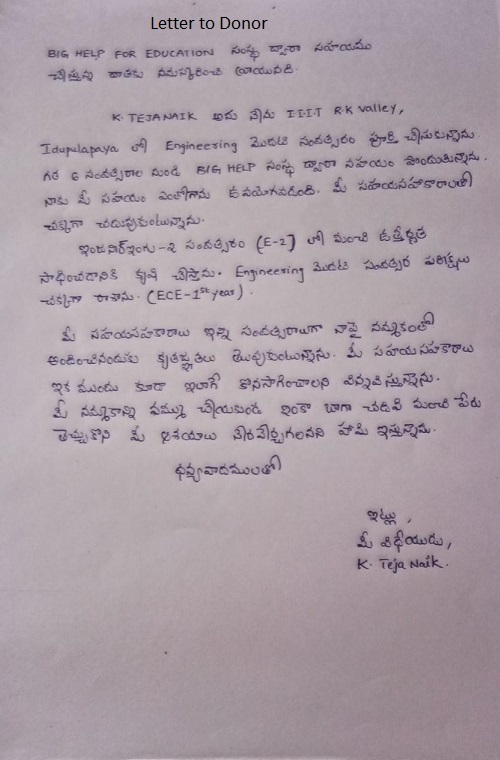 Letter to Donor
BIG HELP FOR EDUCATION సంస్థ ద్వారా సహాయము
చేస్తున్న దాతకు నమస్కరించి వ్రాయునది.
K. TEJANAIK అను నేను I I I T R.K valley,
Idupulapaya లో Engineering మొదటి సంవత్సరం పూర్తి చేసుకున్నాను.
గత 6 సంవత్సరాల నుండి BIG HELP సంస్థ ద్వారా సహాయం పొందుతున్నాను.
నాకు మీ సహాయం ఎంతోగాను ఉపయోగపడింది. మీ సహాయసహకారాలతో
చక్కగా చదువుకుంటున్నాను.
ఇంజనీర్ఇంగు-2 సంవత్సరం (E-2) లో మంచి ఉత్తీర్ణత
సాధించడానికి కృషి చేస్తాను. Engineering మొదటి సంవత్సర పరీక్షలు
చక్కగా రాశాను. (ECE-1st year).
మీ సహాయసహకారాలు ఇన్ని సంవత్సరాలుగా నాపై నమ్మకంతో
అందించినందుకు కృతజ్ఞతలు తెలుపుకుంటున్నాను. మీ సహాయ సహకారాలు
ఇక ముందు కూడా ఇలాగే కొనసాగించాలని విన్నవిస్తున్నాను.
మీ నమ్మకాన్ని వమ్ము చేయకుండ ఇంకా బాగా చదివి మంచి పేరు
తెచ్చుకొని మీ ఆశయాలు నెరవేర్చగలనని హామి ఇస్తున్నాను.
ధన్యవాదములతో
ఇట్లు,
మీ విధేయుడు,
K. Teja Naik.